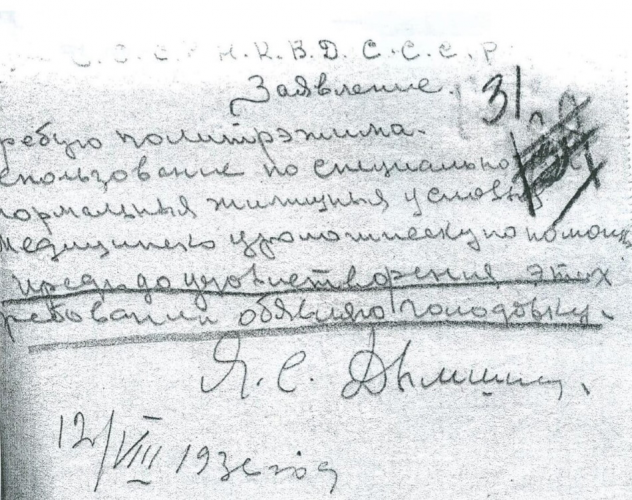 С.С.С.Р Н.К.В.Д. С.С.С.Р.
Заявление.
31
ребую политрэжима.
спользование по специально
нормальныя жилищныя условия
медицинско урологическую помощь
преду до удовлетворения этих
ребований обявляю голодовку.
Я. С.
12/VIII 193 год